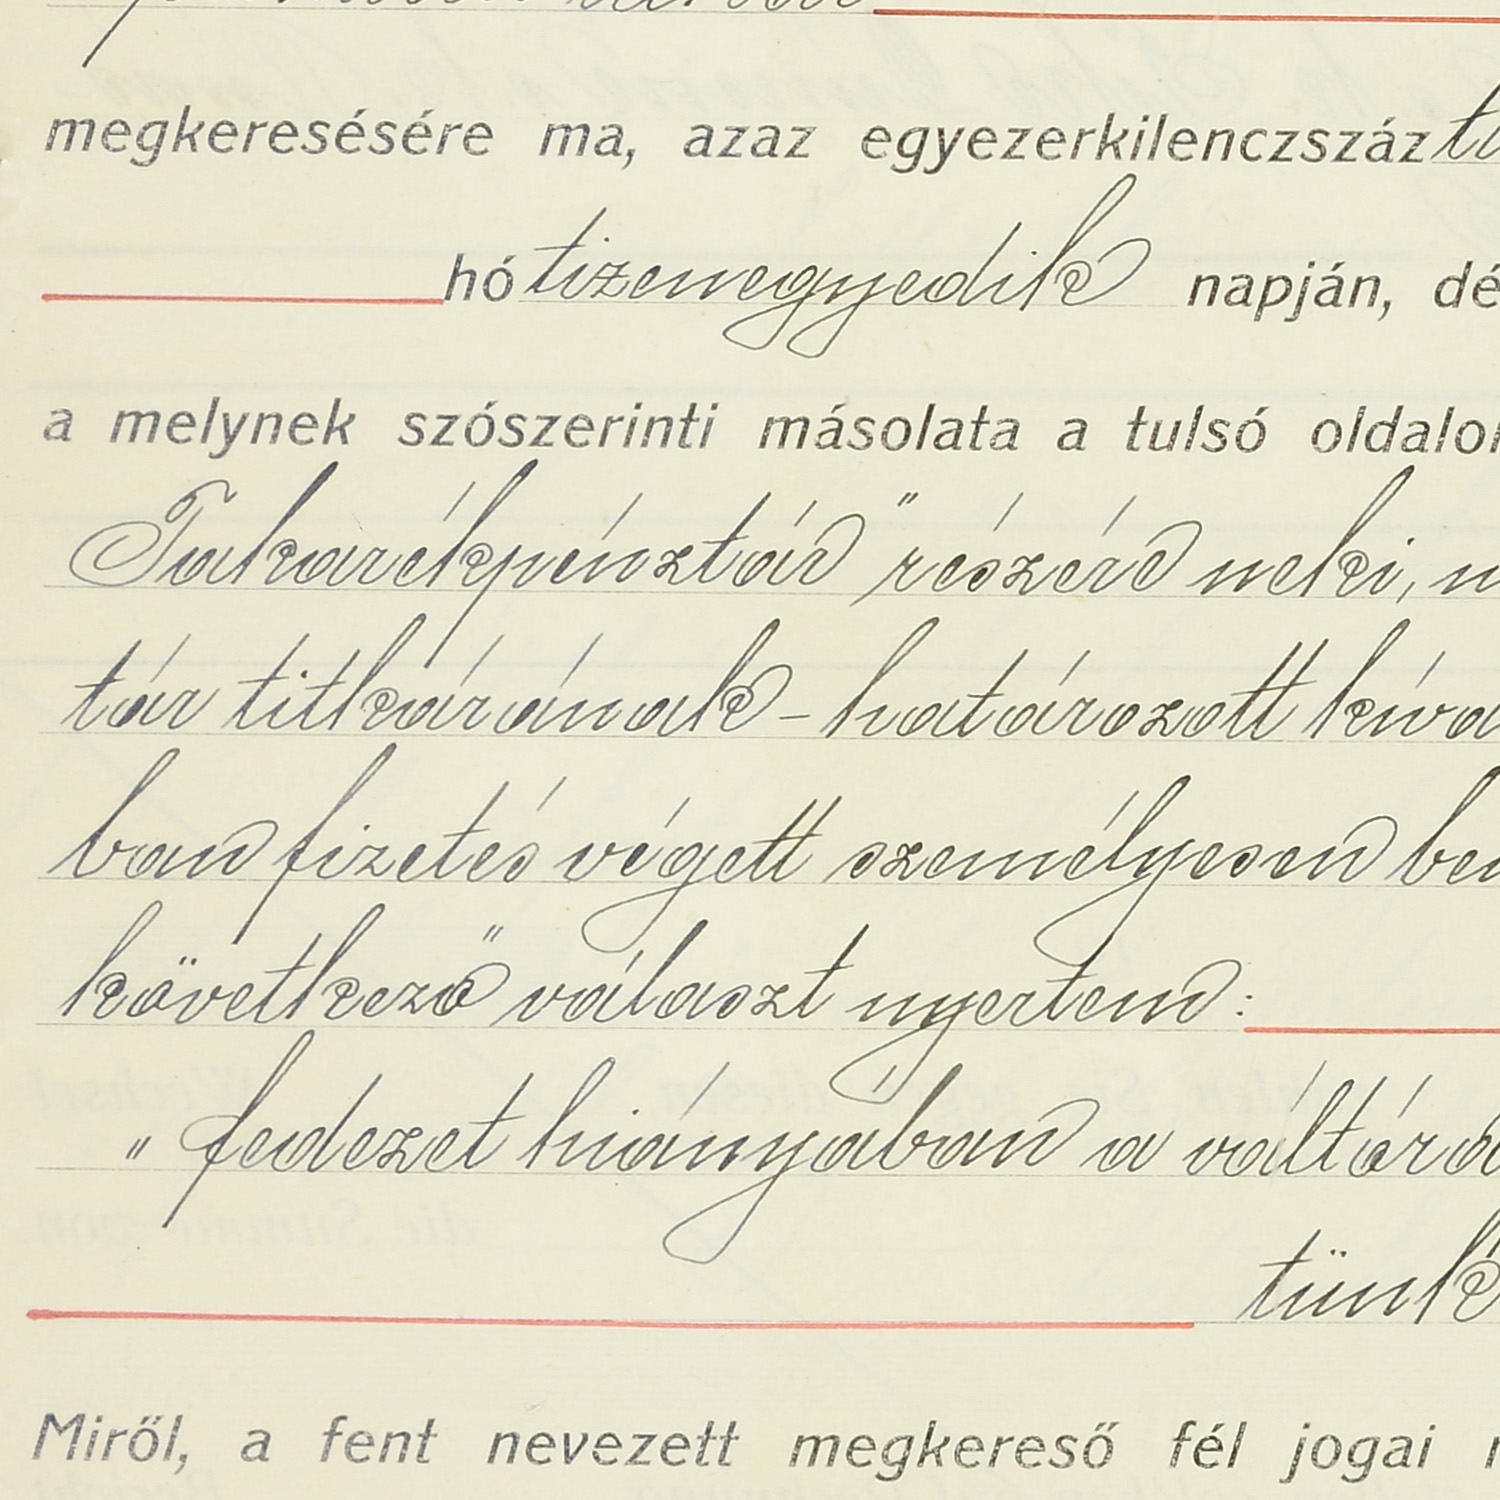 megkeresésére ma, azaz egyezerkilenczszáz
hó tizenegyedik napján, dé
a melynek szószerinti másolata a tulsó oldalon
Takarékpénztár" részére neki, n
tár titkárának - határozott kíva
ban fizetés végett személyesen be
következő választ nyertem:
" fedezet hiányában a váltóra
tünk
Miről, a fent nevezett megkereső fél jogai